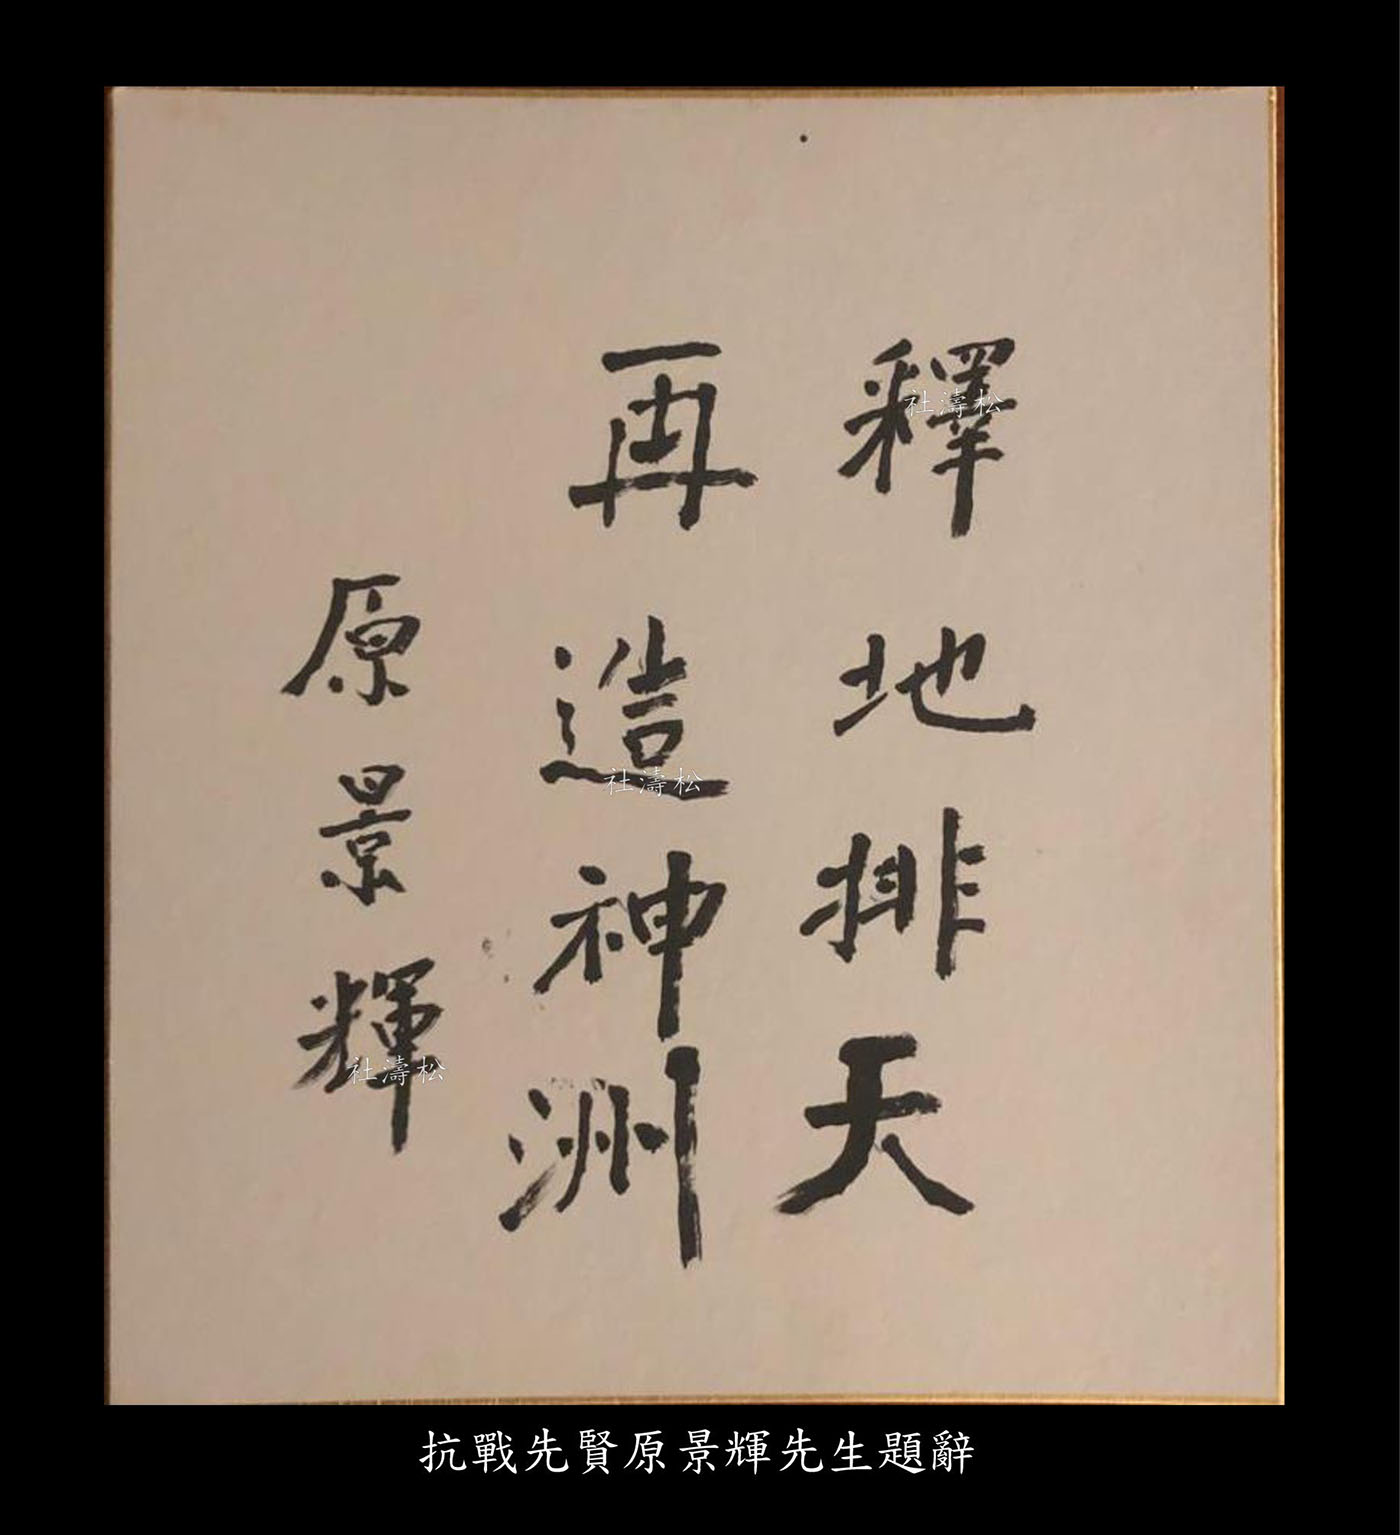 釋地排天
再造神洲
原景輝
社濤松
社濤松
社濤松
抗戰先賢原景輝先生題辭